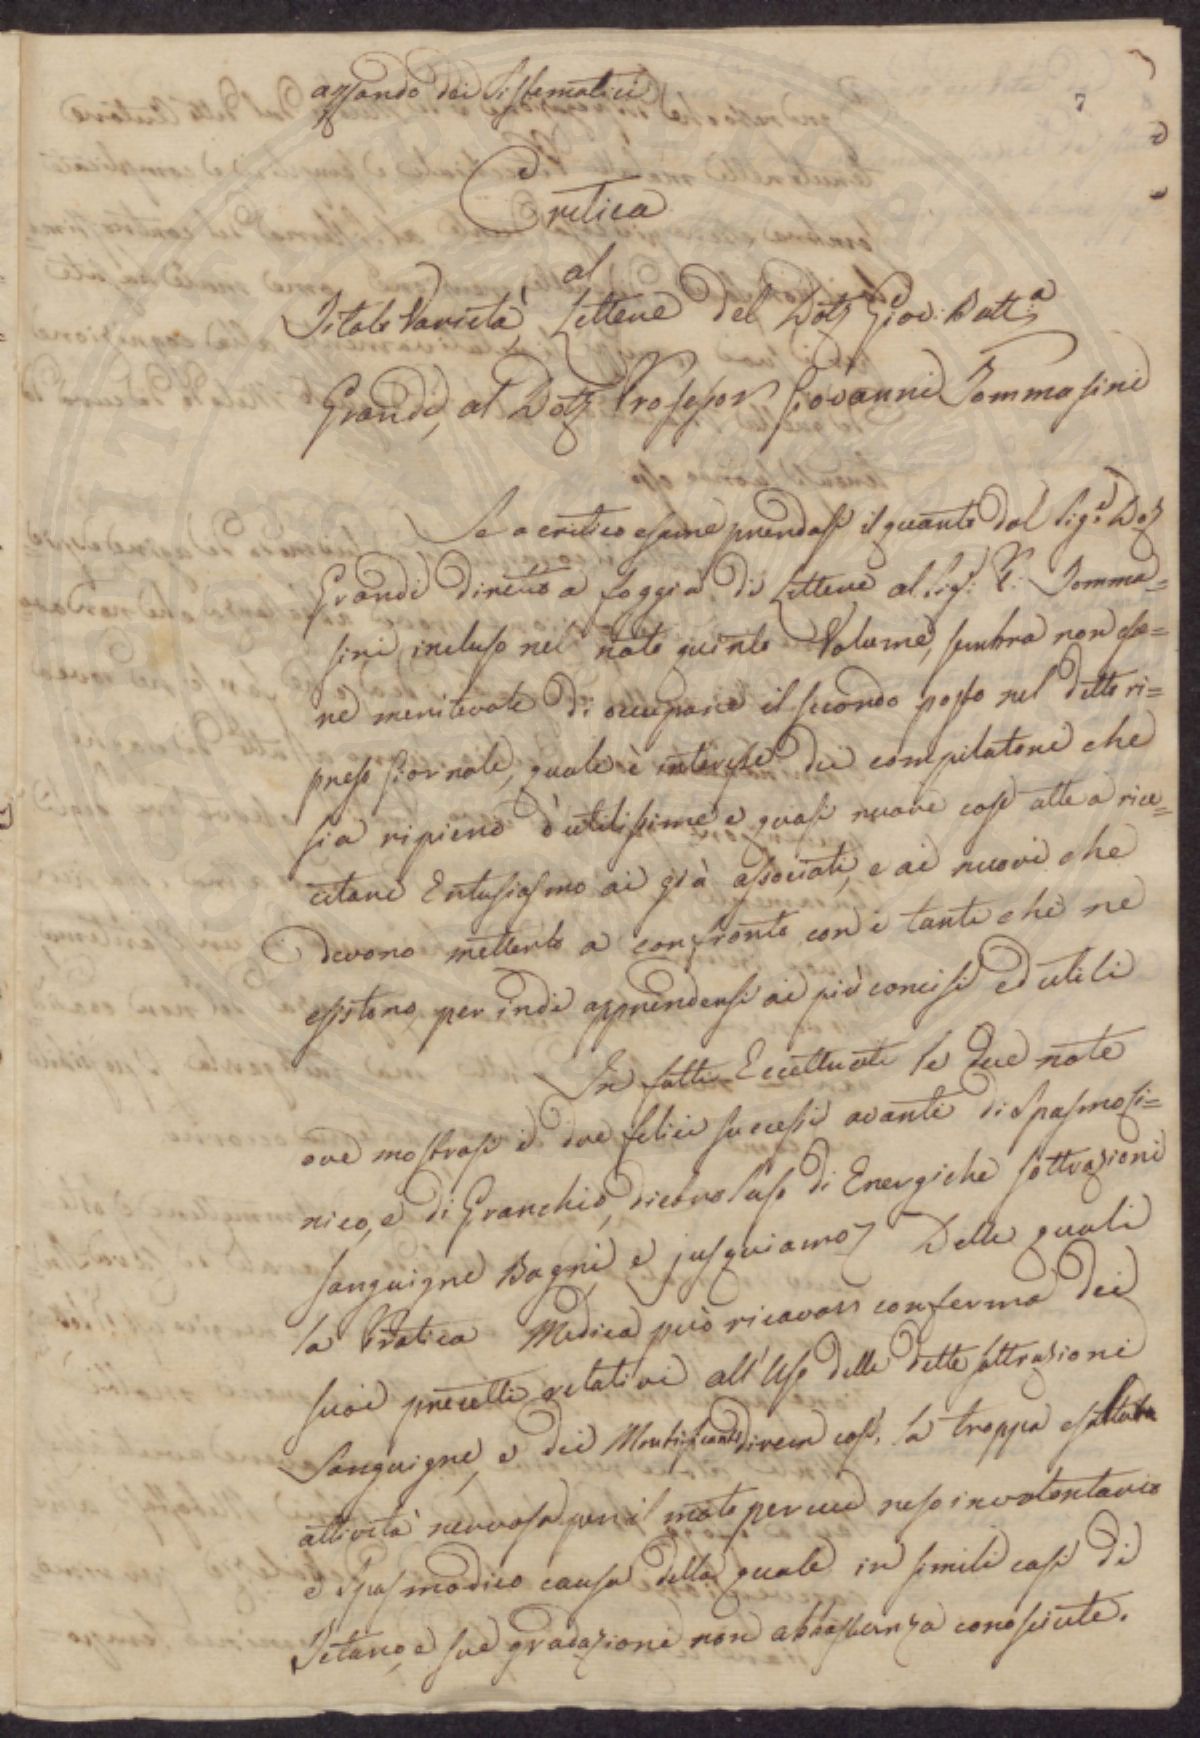 7
assando dei Sistematici
Critica
al
Titolo Varietà, Lettere del Dott. Giov: Batt:a
Grandi, al Dott. Professor Giovanni Tommasini
Se a critico esame prendasi il quanto dal Sig.r Dott.
Grandi diretto a foggia di Lettere al Sig: P: Tomma=
sini incluso nel noto quinto Volume, sembra non esse=
re meritevole di occupare il secondo posto nel detto ri=
preso Giornale, quale è interesse dei compilatori che
sia ripieno d'utilissime e quasi nuove cose atte a rice=
citare Entusiasmo ai già associati, e ai nuovi che
devono metterlo a confronto con i tanti che ne
esistono, per indi apprendersi ai più concisi ed utili
In fatti Eccettuate le due note
ove mostrasi i due felici successi avanti di Spasmo Ci=
nico, e di Granchio, dietro l'uso di Energiche sottrazioni
sanguigne Bagni, e jusquiamo, Delle quali
la Pratica Medica può ricavar conferma dei
suoi precetti relativi all'Uso delle dette sottrazioni
Sanguigne, e dei direm così, la troppa esaltata
attività nervosa per il moto perciò reso involontario
e Spasmodico causa della quale in simili casi di
Tetano, e sue gradazioni non abbastanza conosciute.